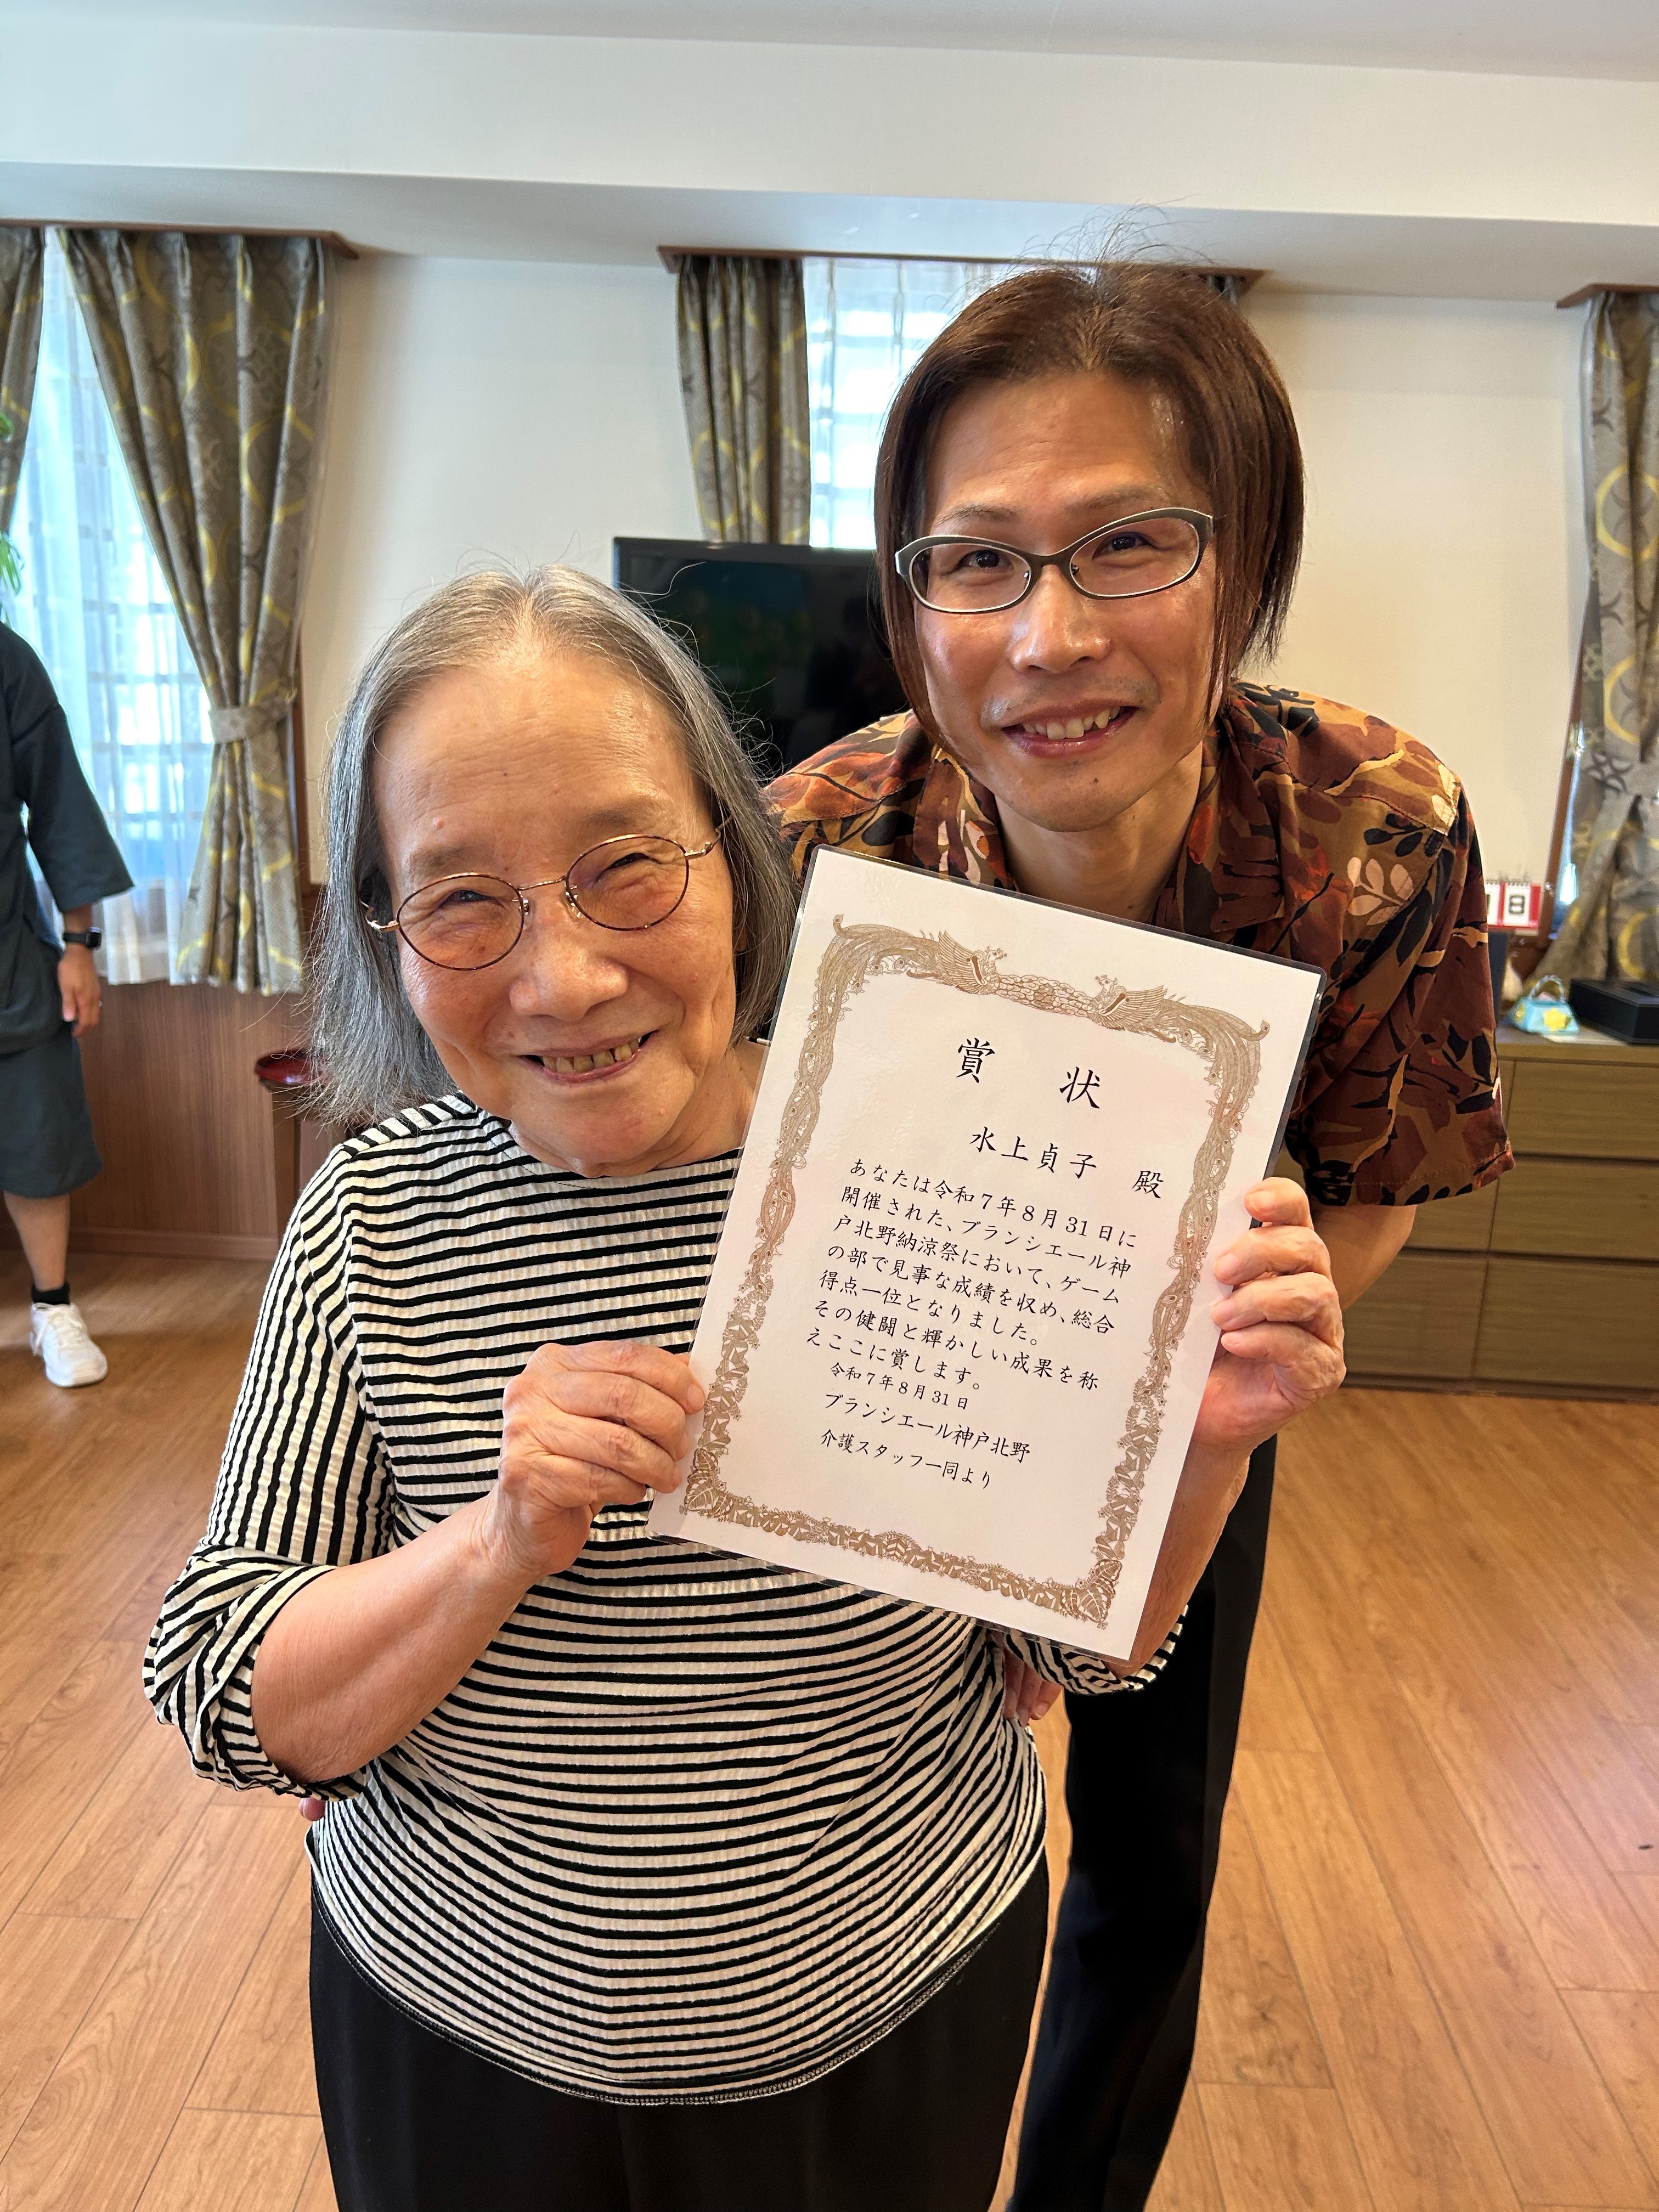 賞 状
水上貞子 殿
あなたは令和7年8月31日に
開催された、ブランシエール神
戸北野納涼祭において、ゲーム
の部で見事な成績を収め、総合
得点一位となりました。
その健闘と輝かしい成果を称
えここに賞します。
令和7年8月31日
ブランシエール神戸北野
介護スタッフ一同より
18